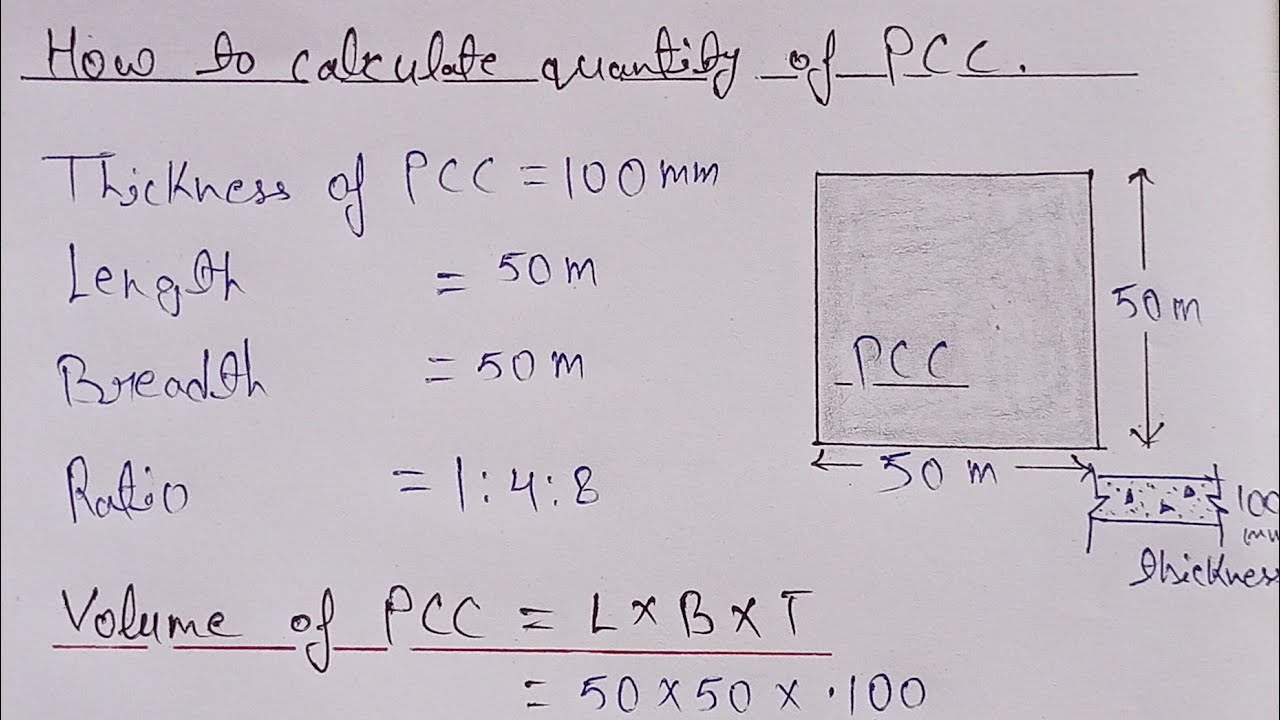 How to calculate quantity of PCC.
Thickness of PCC = 100 mm
Length = 50 m
Breadth = 50 m
Ratio = 1:4:8
PCC
50 m
50 m
100
mm
thickness
Volume of PCC = L × B × T
= 50 × 50 × .100